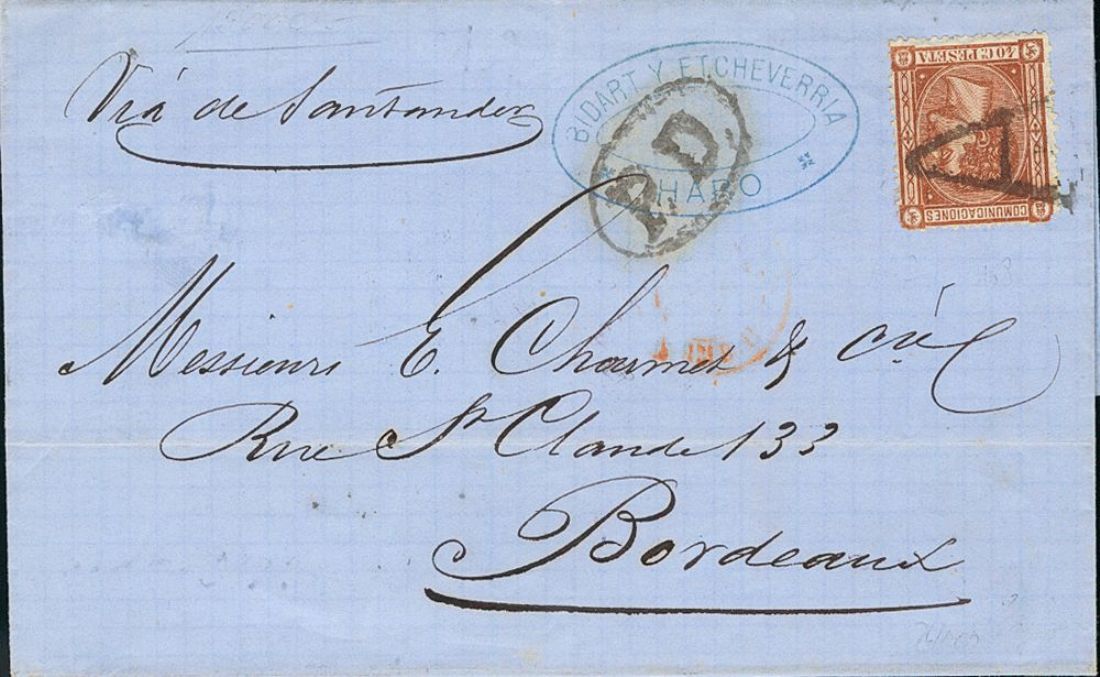 Viá de Santander
BIDART Y ETCHEVERRIA
HARO
P.D
40 C. PESETA
COMUNICACIONES
Messieurs E. Choumet & Cie
Rue St Claude 133
Bordeaux